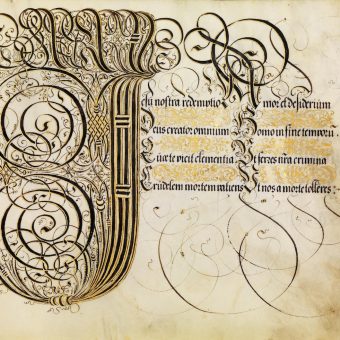 Jesu nostra redemptio Amor et desiderium
Deus creator omnium Homo in fine temporũ
Quæ te vicit clementia Ut feres nr̃a crimina
Crudelem mortem patiens Ut nos a morte tolleres: